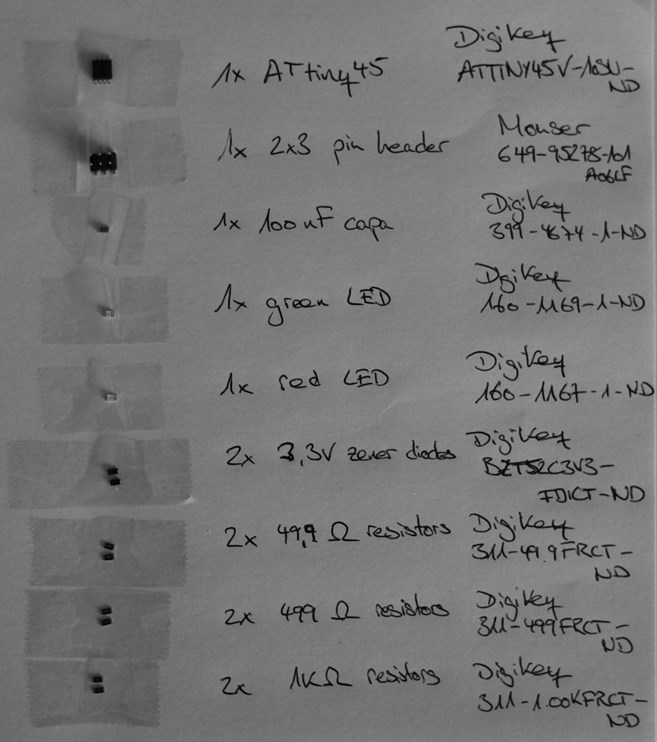 1x ATtiny45
DigiKey
ATTINY45V-10SU-
ND
1x 2x3 pin header
Mouser
649-95278-101
A06LF
1x 100nF capa
DigiKey
399-4674-1-ND
1x green LED
DigiKey
160-1169-1-ND
1x red LED
DigiKey
160-1167-1-ND
2x 3,3V zener diodes
DigiKey
BZT52C3V3-
FDICT-ND
2x 49,9 Ω resistors
DigiKey
311-49.9FRCT-
ND
2x 499 Ω resistors
DigiKey
311-499FRCT-
ND
2x 1KΩ resistors
DigiKey
311-1.00KFRCT-
ND